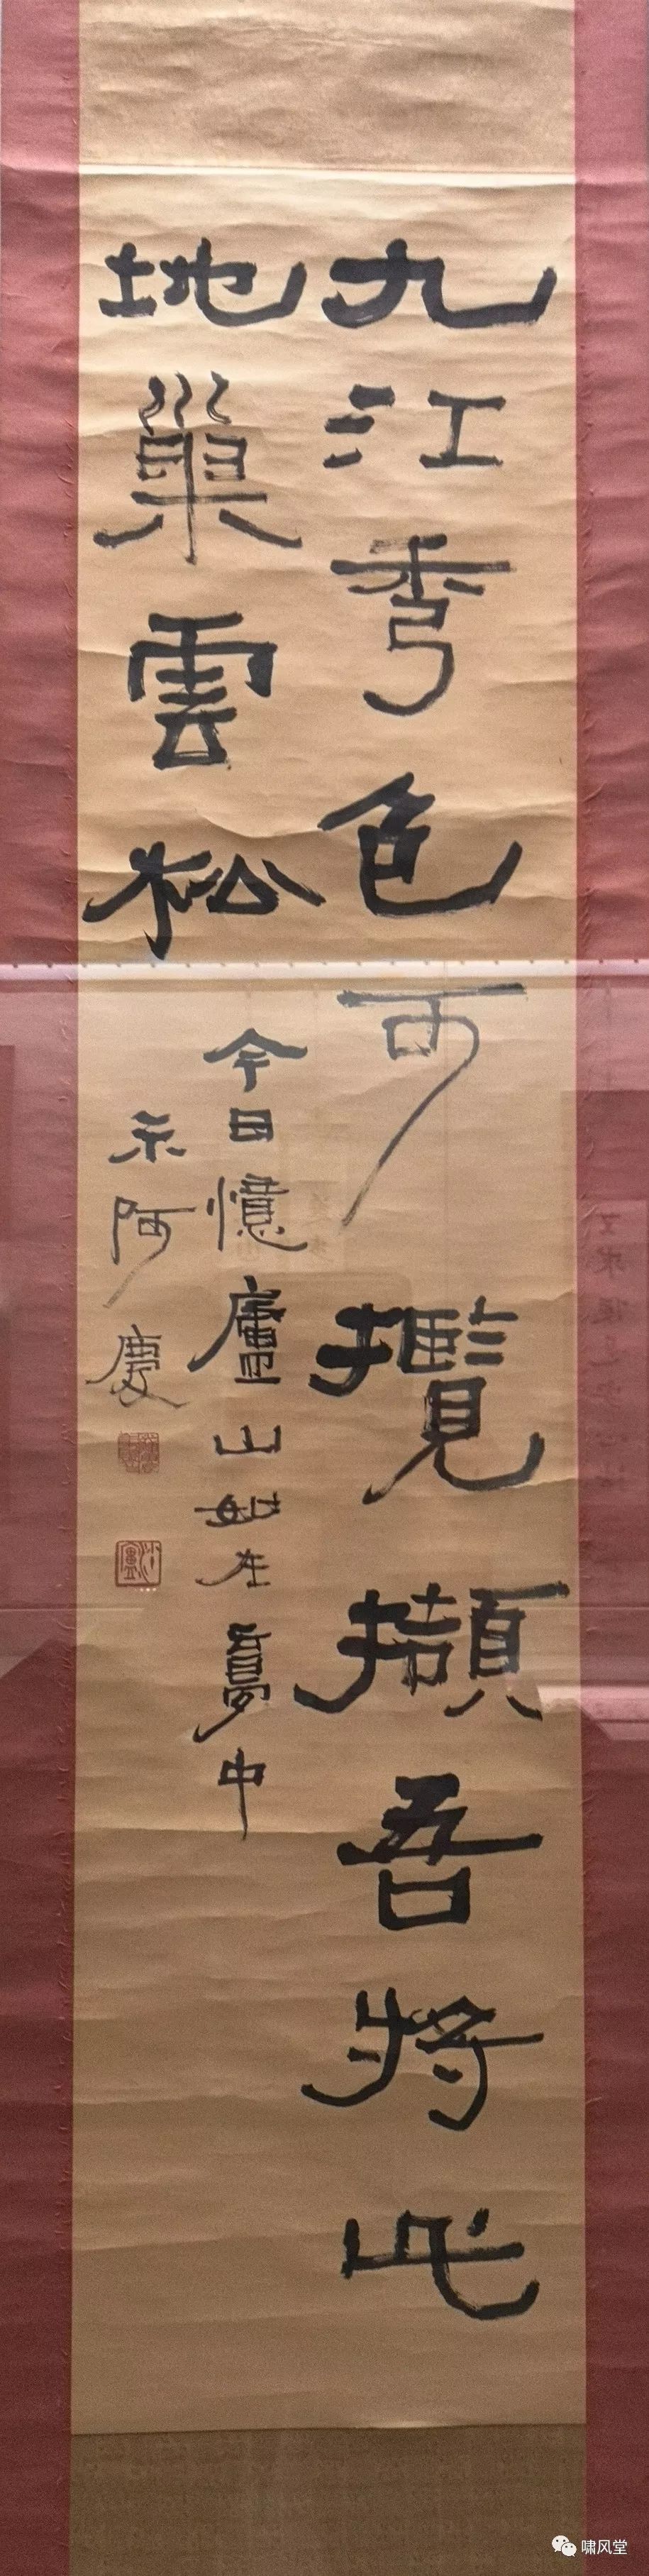 九江秀色可攬擷吾將此
地巢雲松
今日憶廬山如在夢中
示阿慶
啸风堂